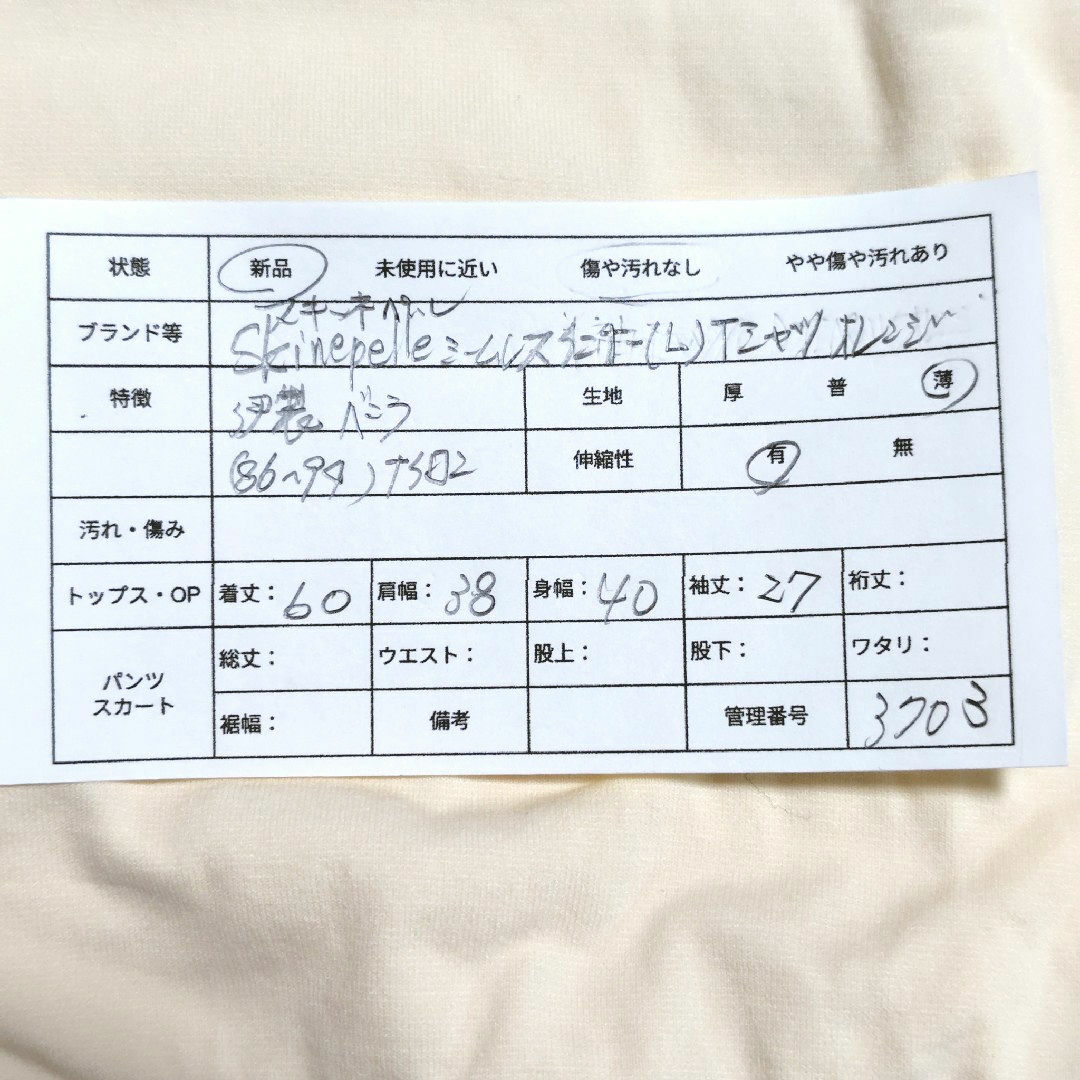 状態 新品 未使用に近い 傷や汚れなし やや傷や汚れあり
スキーネペレ
ブランド等 Skinepelle シームレス (L) Tシャツ オレンジ
特徴 伊製 生地 厚 普 薄
(86~94) 伸縮性 有 無
汚れ・傷み
トップス・OP 着丈：60 肩幅：38 身幅：40 袖丈：27 裄丈：
パンツ スカート 総丈： ウエスト： 股上： 股下： ワタリ：
裾幅： 備考 管理番号 3703